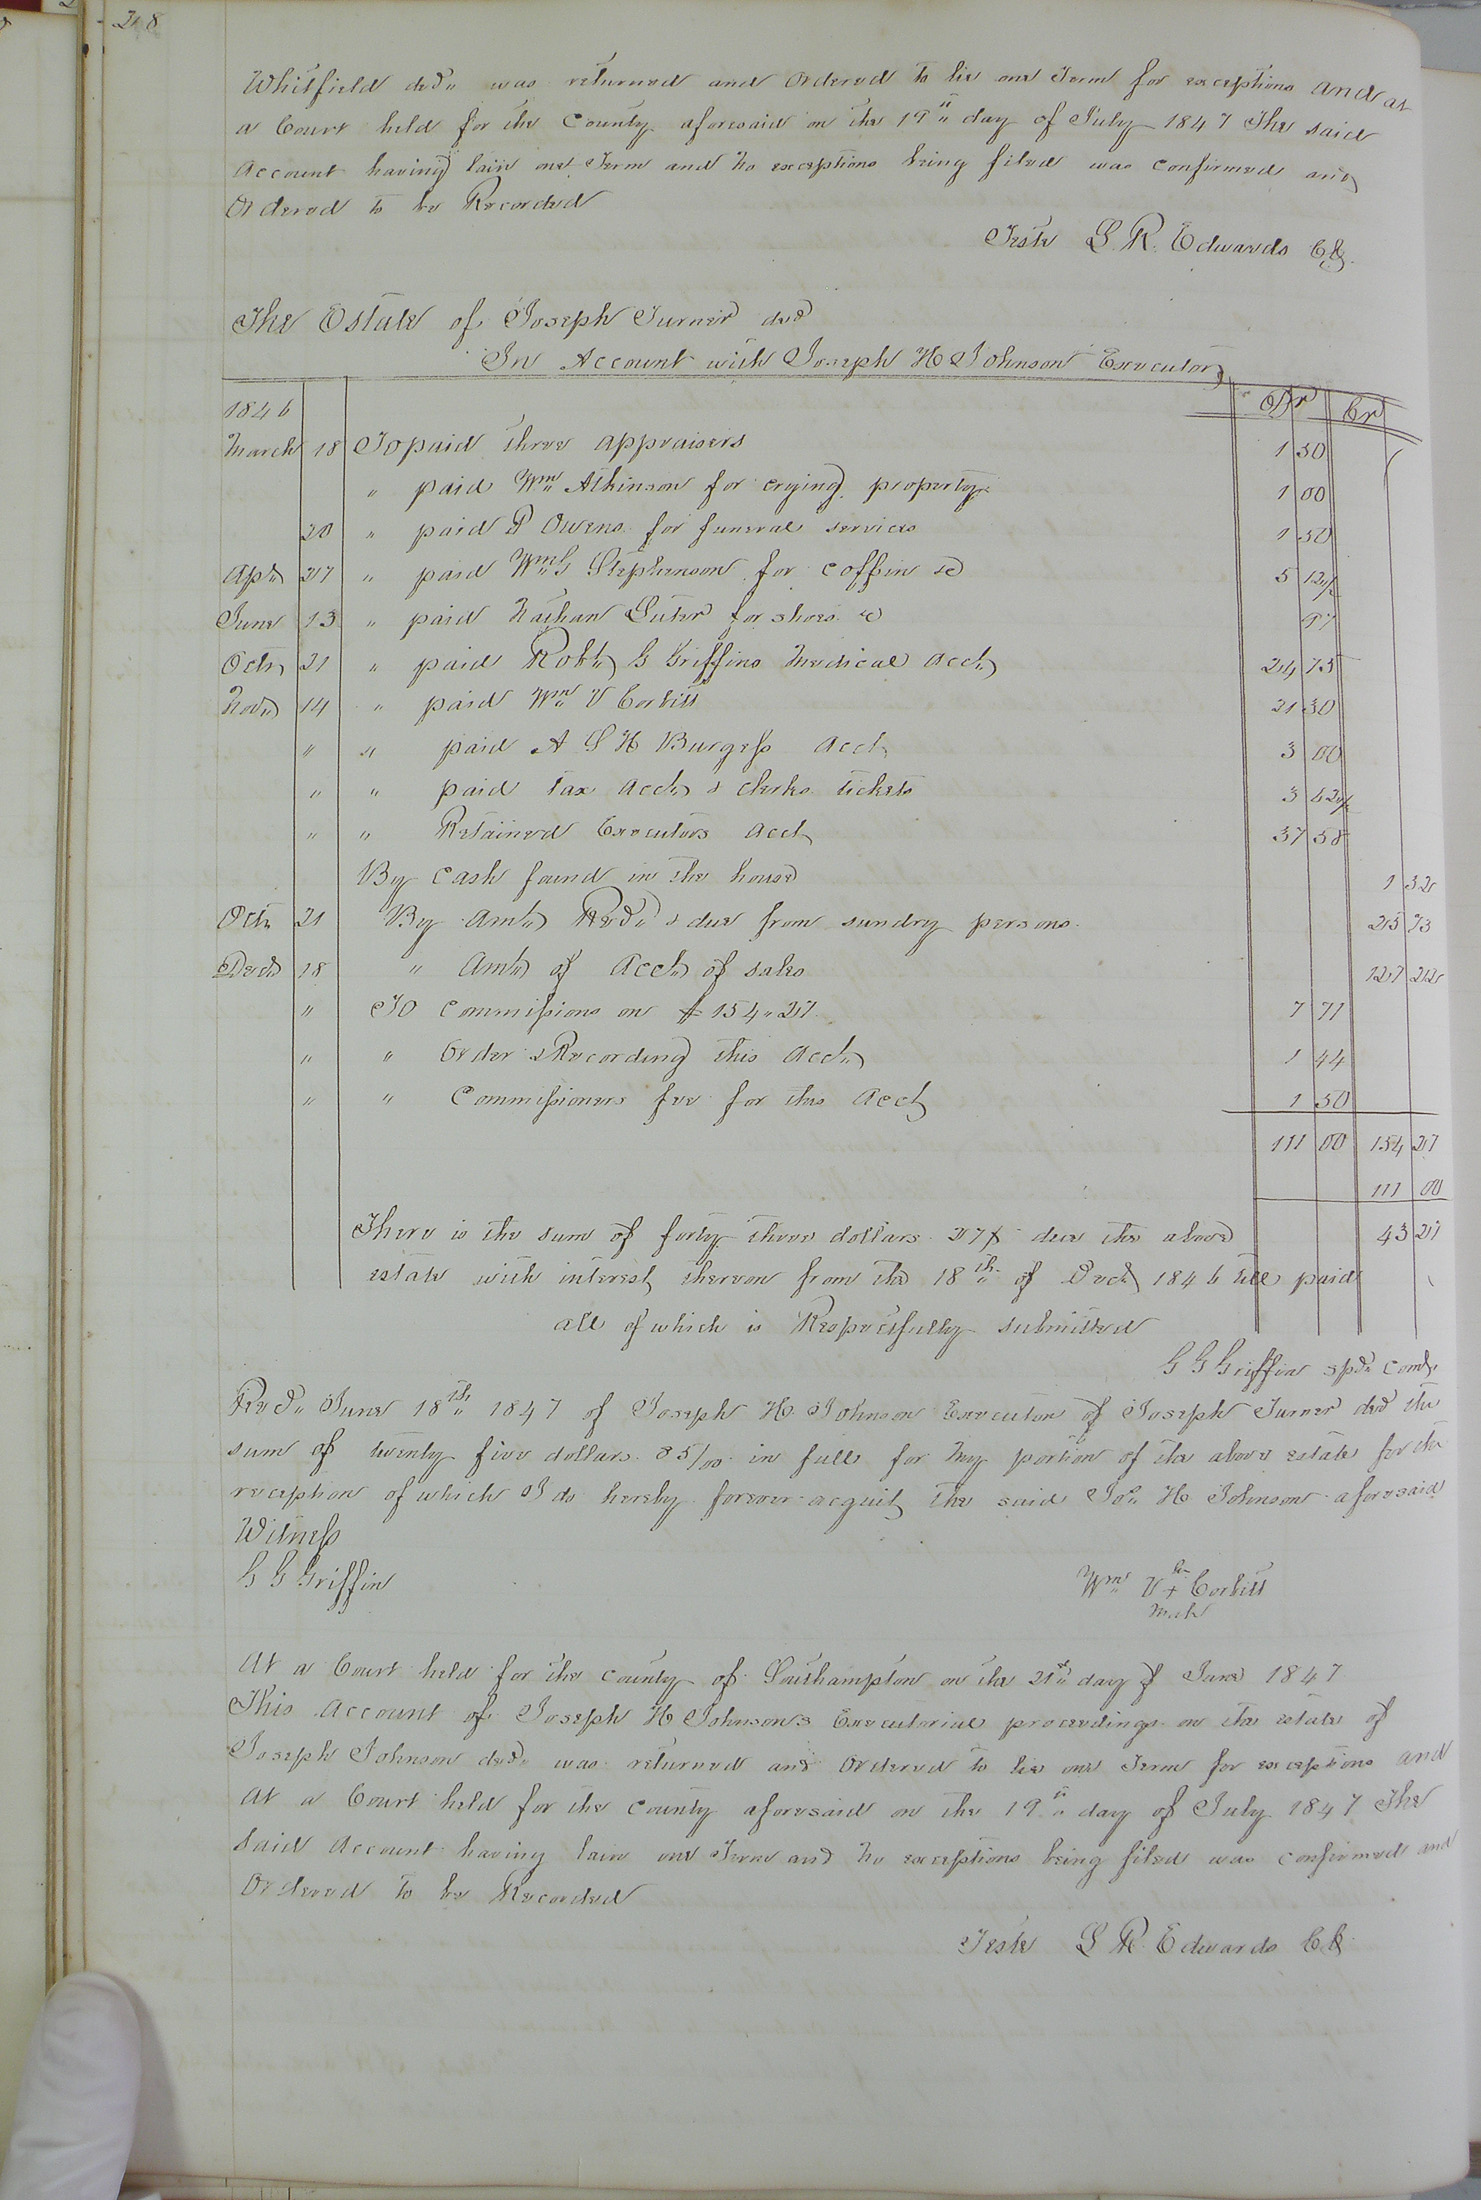 218
Whitfield decd. was returned and Ordered to lie one Term for exceptions and at
a Court held for the County aforesaid on the 19th day of July 1847 The said
Account having lain one Term and no exceptions being filed was confirmed and
Ordered to be Recorded
Teste L. R. Edwards Ck.
The Estate of Joseph Turner decd
In Account with Joseph H Johnson Executor
Dr Cr
1846
March 18 To paid three appraisers 1 50
" paid Wm Atkinson for crying property 1 00
20 " paid P Owens for funeral services 1 50
Apl 27 " paid Wm G Stephenson for coffin &c 5 12 1/2
June 13 " paid Nathan Luter for shoes &c 97
Octr 21 " paid Robt G Griffins Medical Acct 24 75
Novr 14 " paid Wm V Corbitt 21 30
" " paid A S H Burgess Acct 3 00
" " paid Tax Acct & clerks tickets 3 62 1/2
" " Retained Executors Acct 37 58
By Cash found in the house 1 32
Octr 21 By Amt Recd & due from sundry persons 25 73
Decr 18 " Amt of Acct of sales 127 22
" To Commissions on $154.27 7 71
" " Order & Recording this Acct 1 44
" " Commissioners fee for this Acct 1 50
111 00 154 27
111 00
43 27
There is the sum of forty three dollars 27¢ due the above
estate with interest thereon from the 18th of Decr 1846 till paid
all of which is Respectfully submitted
G G Griffin Spl. Comr
Recd. June 18th 1847 of Joseph H. Johnson Executor of Joseph Turner decd the
sum of twenty five dollars 85/00 in full for my portion of the above estate for the
reception of which I do hereby forever acquit the said Jos. H Johnson aforesaid
Witness
G G Griffin
Wm V his + Corbitt
mark
At a Court held for the County of Southampton on the 21st day of June 1847
This Account of Joseph H Johnson's Executorial proceedings on the estate of
Joseph Johnson decd. was returned and Ordered to lie one Term for exceptions and
At a Court held for the County aforesaid on the 19th day of July 1847 The
said Account having lain one Term and no exceptions being filed was confirmed and
Ordered to be Recorded
Teste L R. Edwards Ck